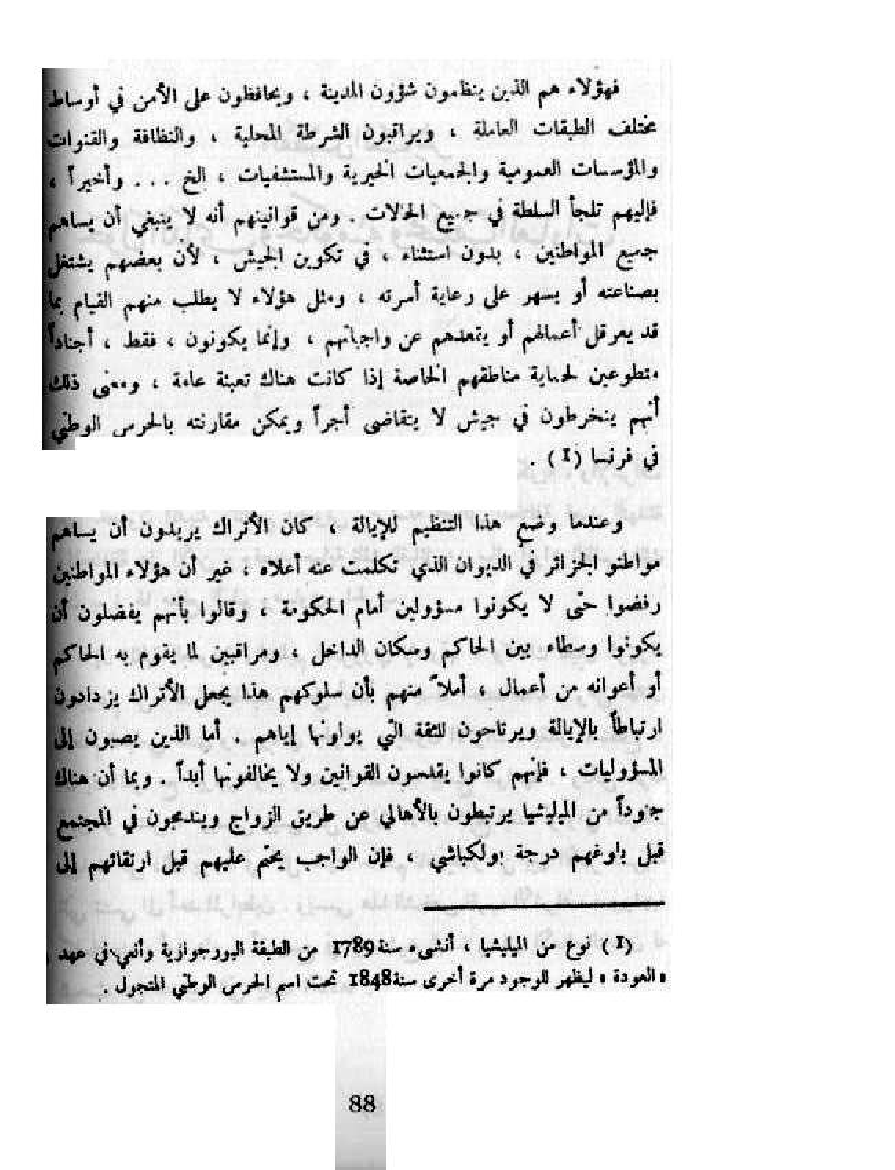 فهؤلاء هم الذين ينظمون شؤون المدينة ، ويحافظون على الأمن في أوساط
مختلف الطبقات العاملة ، ويراقبون الشرطة المحلية ، والنظافة والقنوات
والمؤسسات العمومية والجمعيات الخيرية والمستشفيات ، الخ ... وأخيراً ،
فإليهم تلجأ السلطة في جميع الحالات . ومن قوانينهم أنه لا ينبغي أن يساهم
جميع المواطنين ، بدون استثناء ، في تكوين الجيش ، لأن بعضهم يشتغل
بصناعته أو يسهر على رعاية أسرته ، ومثل هؤلاء لا يطلب منهم القيام بما
قد يعرقل أعمالهم أو يقعدهم عن واجباتهم ، وإنما يكونون ، فقط ، أجناداً
متطوعين لحماية مناطقهم الخاصة إذا كانت هناك تعبئة عامة ، ومعنى ذلك
أنهم ينخرطون في جيش لا يتقاضى أجراً ويمكن مقارنته بالحرس الوطني
في فرنسا (1) .
وعندما وضع هذا التنظيم للإيالة ، كان الأتراك يريدون أن يساهم
مواطنو الجزائر في الديوان الذي تكلمت عنه أعلاه ، غير أن هؤلاء المواطنين
رفضوا حتى لا يكونوا مسؤولين أمام الحكومة ، وقالوا بأنهم يفضلون أن
يكونوا وسطاء بين الحاكم وسكان الداخل ، ومراقبين لما يقوم به الحاكم
أو أعوانه من أعمال ، أملاً منهم بأن سلوكهم هذا يجعل الأتراك يزدادون
ارتباطاً بالإيالة ويرتاحون للثقة التي يولونها إياهم . أما الذين يصبون إلى
المسؤوليات ، فإنهم كانوا يقدسون القوانين ولا يخالفونها أبداً . وبما أن هناك
جنوداً من الميليشيا يرتبطون بالأهالي عن طريق الزواج ويندمجون في المجتمع
قبل بلوغهم درجة بولكباشي ، فإن الواجب يحتم عليهم قبل ارتقائهم إلى
(1) نوع من الميليشيا ، أنشىء سنة 1789 من الطبقة البورجوازية وألغي في عهد
« العودة » ليظهر للوجود مرة أخرى سنة 1848 تحت اسم الحرس الوطني المتجول .
88